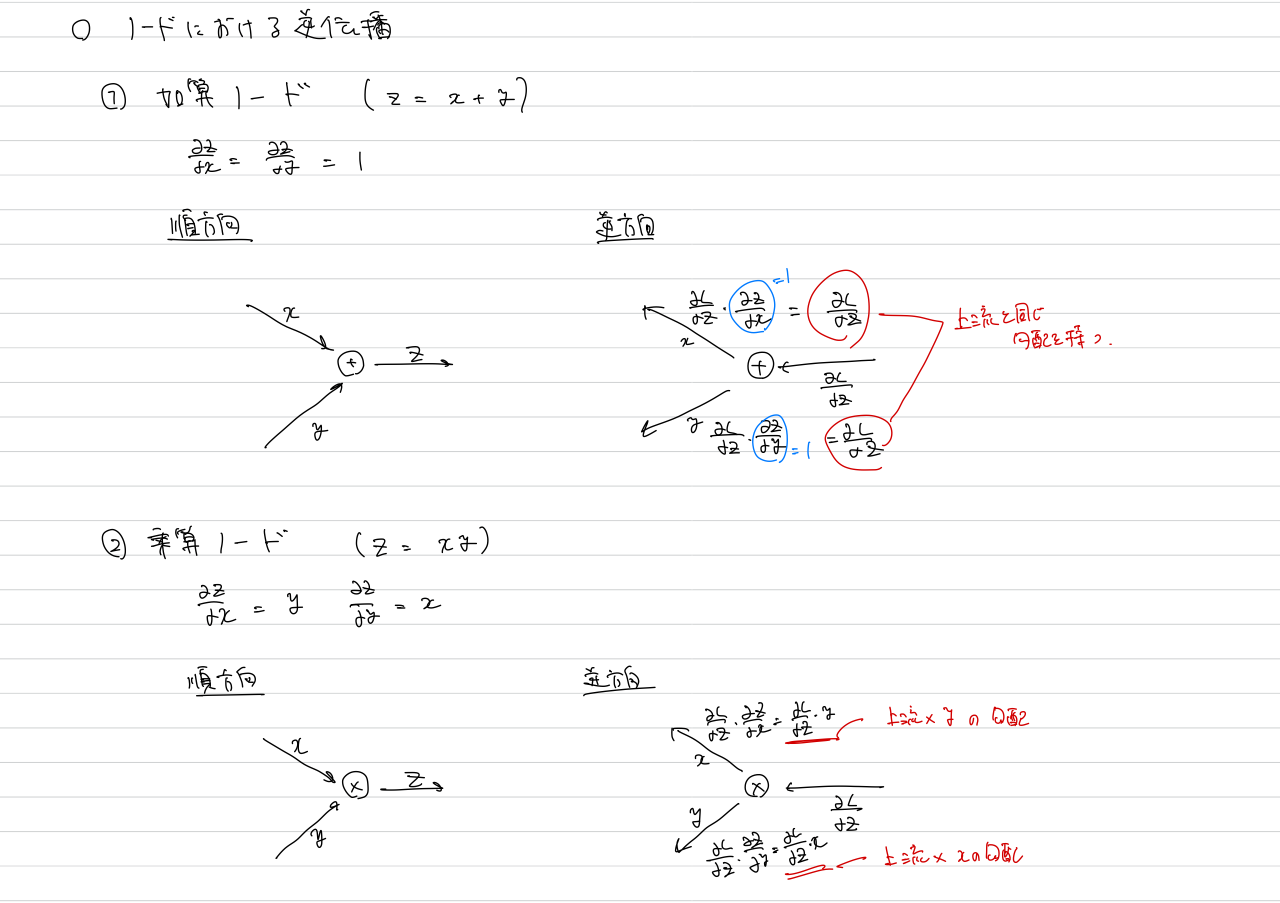 ○ ノードにおける逆伝播
① 加算ノード (z = x + y)
∂z/∂x = ∂z/∂y = 1
順方向
逆方向
x
y
+
z
∂L/∂z · ∂z/∂x = ∂L/∂z
=1
x
+
∂L/∂z
y
∂L/∂z · ∂z/∂y = ∂L/∂z
=1
上流と同じ
勾配を持つ.
② 乗算ノード (z = xy)
∂z/∂x = y ∂z/∂y = x
順方向
逆方向
x
y
×
z
∂L/∂z · ∂z/∂x = ∂L/∂z · y
上流 × y の勾配
x
×
∂L/∂z
y
∂L/∂z · ∂z/∂y = ∂L/∂z · x
上流 × x の勾配